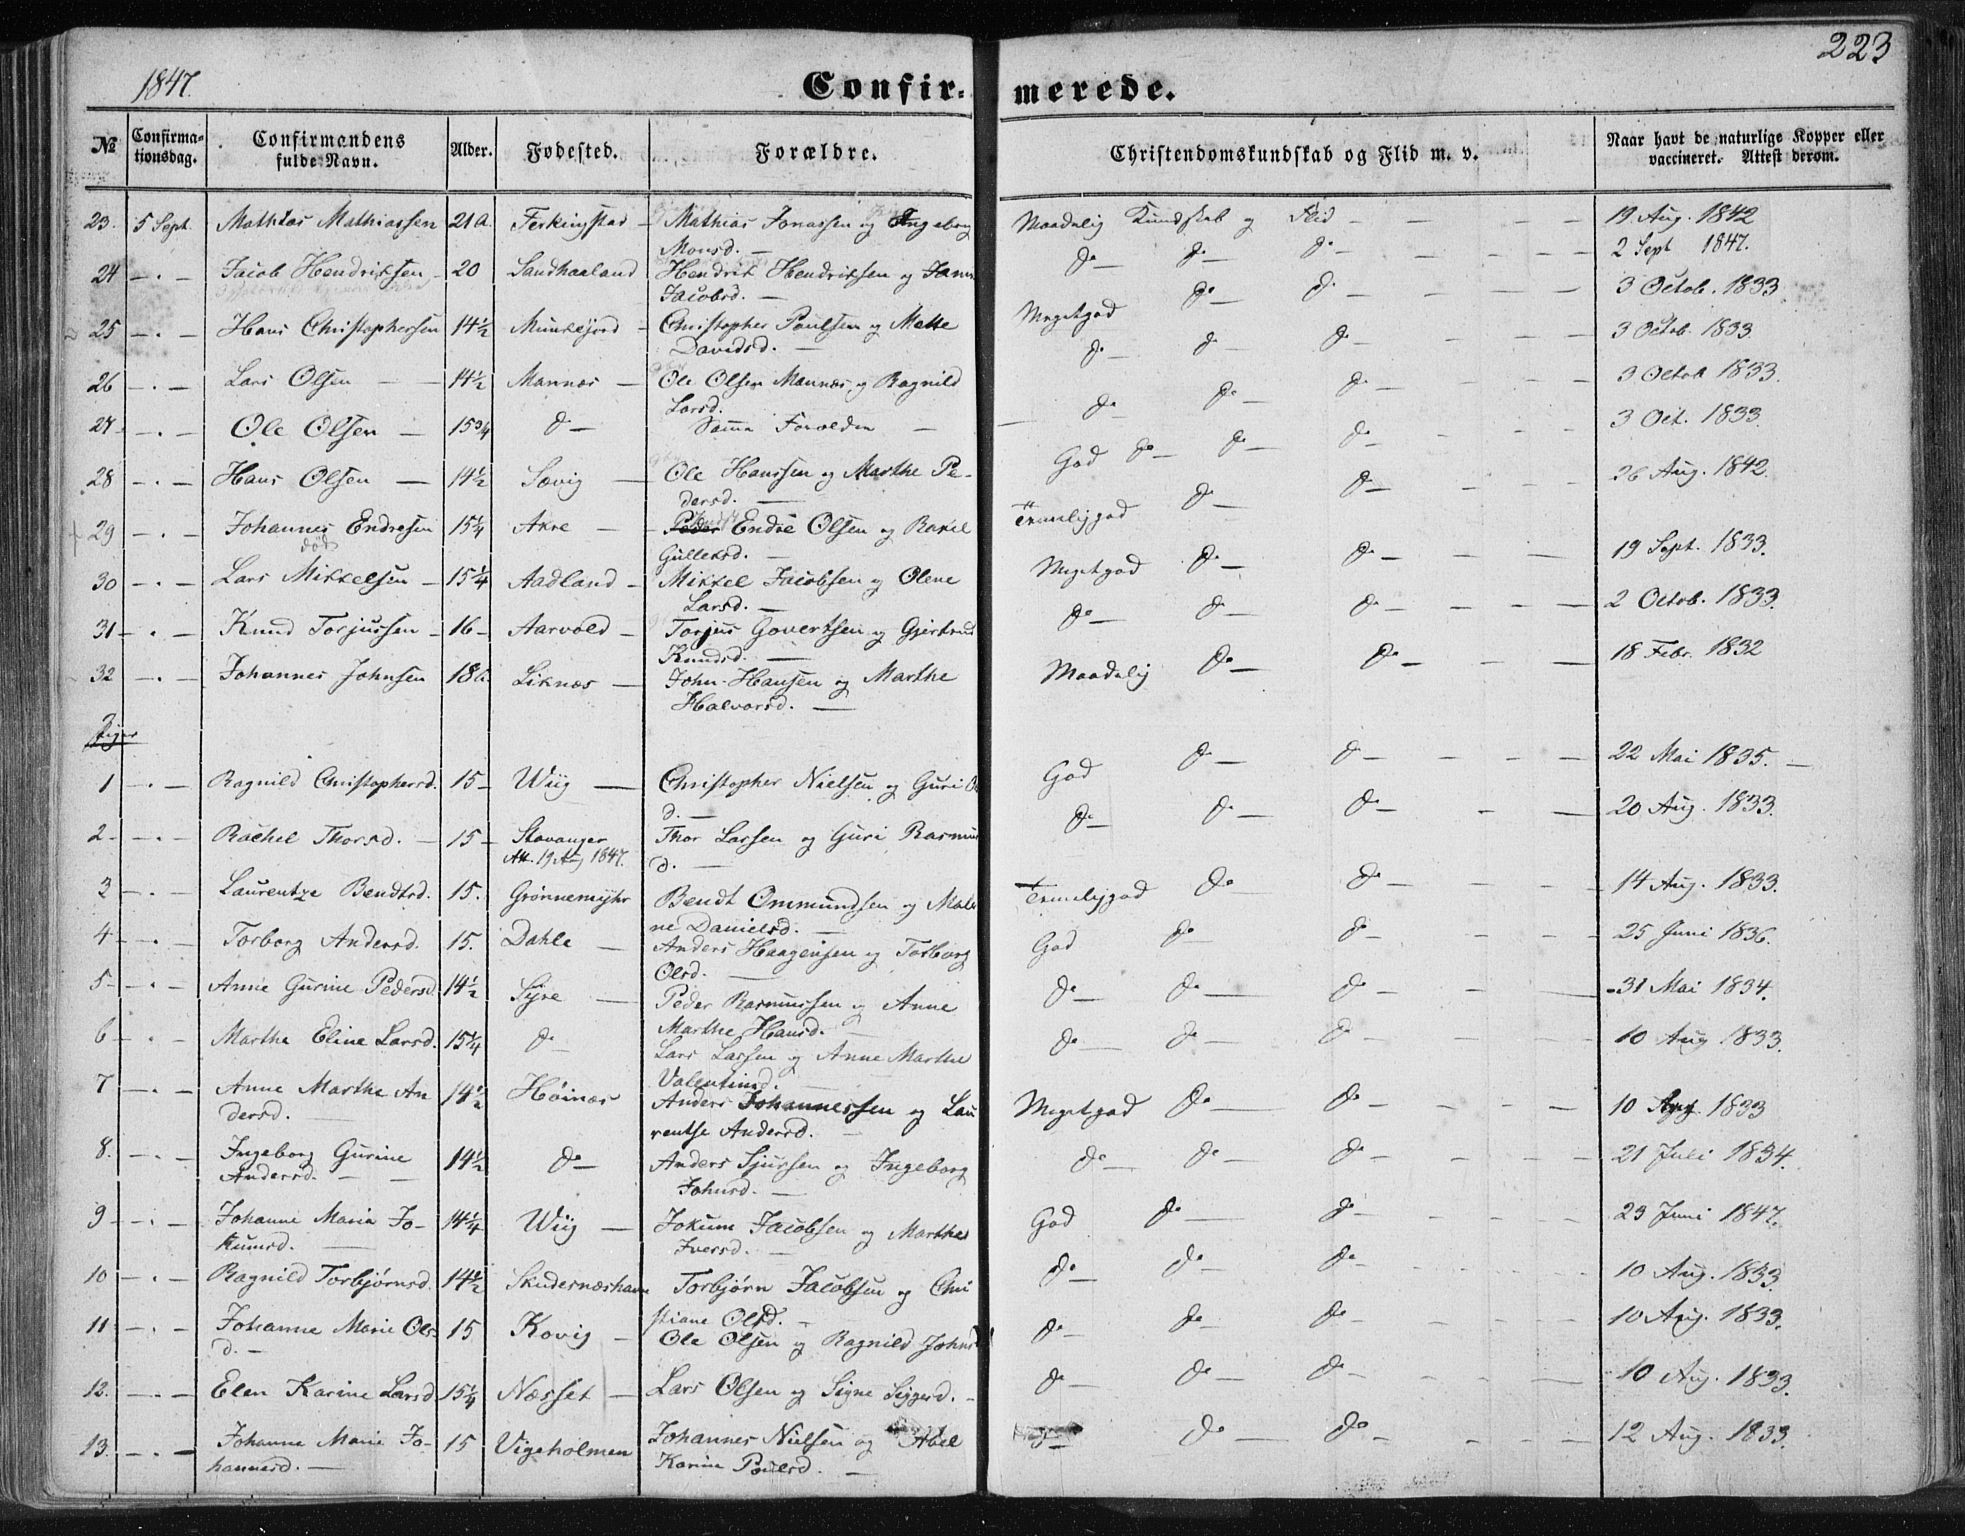 223
1847.
Confir- merede.
№ Confirma- tionsdag. Confirmandens fulde Navn. Alder. Fødested. Forældre. Christendomskundskab og Flid m. v. Naar havt de naturlige Kopper eller vaccineret. Attest derom.
23. 5 Sept. Mathias Mathiassen 21 a. Ferkingstad - Mathias Jonassen og Ingeborg Maadelig Kundskab og Flid - 19 Aug. 1842
Monsd. -
24 - . - Jacob Hendriksen - 20 Sandhaaland Hendrik Hendriksen og Do - Do - Do - 2 Sept 1847.
Jacobsd. -
25 - . - Hans Christophersen 14½ Munkejord - Christopher Poulsen og Mette Megetgod Do - Do - 3 Octob. 1833
Davidsd. -
26 - . - Lars Olsen - 14½ Mannæs - Ole Olsen Mannæs og Ragnild Do - Do - Do - 3 Octob. 1833.
Larsd.
27 - . - Ole Olsen - 15¾ Do - Samme Forældre - Do - Do - Do - 3 Octob 1833.
28 - . - Hans Olsen - 14½ Sævig - Ole Hanssen og Marthe Pe- God Do - Do - Do - 3 Oct. 1833.
dersd. -
29 - . - Johannes Endresen 15¼ Akre - Endre Olsen og Rakel Temeliggod Do - Do - 26 Aug. 1842.
død Gulleksd. -
30 - . - Lars Mikkelsen - 15¼ Aadland - Mikkel Jacobsen og Olene Megetgod Do - Do - 19 Sept. 1833.
Larsd. -
31 - . - Knud Torjussen - 16 - Aarvold - Torjus Govertsen og Gjertrud Do - Do - Do - 2 Octob. 1833.
Knudsd. -
32 - . - Johannes Johnsen 18 a. Liknæs - John Hansen og Marthe Maadelig Do - Do - 18 Febr. 1832
Halvorsd. -
Piger
1 - . - Ragnild Christophersd. 15 - Wiig - Christopher Nielsen og Guri God Do - Do - 22 Mai 1835. -
d. -
2 - . - Rachel Thorsd. - 15 - Stavanger Thor Larsen og Guri Rasmus Do - Do - Do - 20 Aug. 1833.
Att. 19 Aug 1847. d. -
3 - . - Laurentze Bendtsd. 15. Grønnemyhr Bendt Ommundsen og Male Temeliggod Do - Do - 14 Aug. 1833.
ne Danielsd. -
4 - . - Torborg Andersd. 15. Dahle - Anders Haagensen og Torborg God Do - Do - 25 Juni 1836.
Olsd. -
5 - . - Anne Gurine Pedersd. 14½ Syre - Peder Rasmussen og Anne Do - Do - Do - 31 Mai 1834.
Marthe Hansd. -
6 - . - Marthe Eline Larsd. 15¼ Do - Lars Larsen og Anne Marthe Do - Do - Do - 10 Aug 1833.
Valentinsd. -
7 - . - Anne Marthe An 14½ Høinæs Anders Johannessen og Lau Megetgod Do - Do - 10 Aug. 1833
dersd. - rentse Andersd. -
8. - . - Ingeborg Gurine 14½ Do - Anders Sjursen og Ingeborg Do - Do - Do - 21 Juli 1834.
Andersd. - Johnsd. -
9 - . - Johanne Maria Jo- 14¼ Wiig - Jokum Jacobsen og Marthe God Do - Do - 23 Juni 1847.
kumsd. - Iversd. -
10 - . - Ragnild Torbjørnsd. 14½ Skudesnæshavn Torbjørn Jacobsen og Chri Do - Do - Do - 10 Aug. 1833.
stiane Olsd. -
11 - . - Johanne Marie Ols 15 Kovig - Ole Olsen og Ragnild Johns Do - Do - Do - 10 Aug. 1833.
d. -
12. - . - Elen Karine Larsd 15¼ Næsset - Lars Olsen og Signe Siggesd. - Do - Do - Do - 10 Aug. 1833.
13. - . - Johanne Marie Jo- 15 Vigeholmen Johannes Nielsen og Abel Do - Do - 12 Aug. 1833.
hannesd. - Karine Poulsd. -